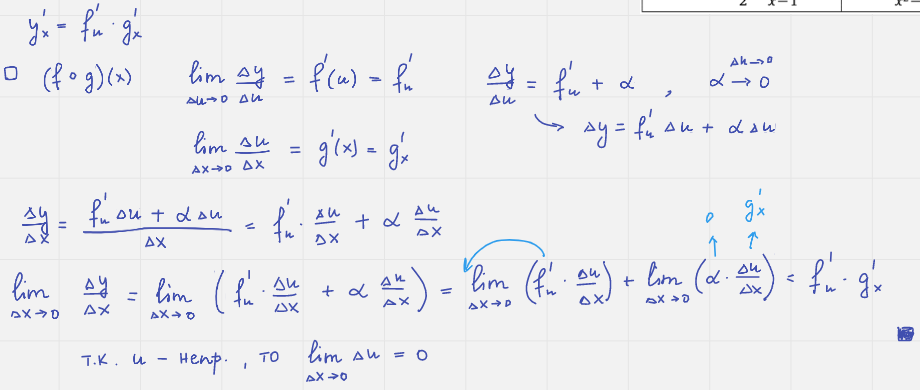 2 x−1
y'ₓ = f'ᵤ · g'ₓ
□ (f ∘ g)(x) lim Δu→0 Δy/Δu = f'(u) = f'ᵤ Δy/Δu = f'ᵤ + α , α Δu→0 → 0
↪ Δy = f'ᵤ Δu + α Δu
lim Δx→0 Δu/Δx = g'(x) = g'ₓ
Δy/Δx = (f'ᵤ Δu + α Δu)/Δx = f'ᵤ · Δu/Δx + α Δu/Δx
0 g'ₓ
lim Δx→0 Δy/Δx = lim Δx→0 (f'ᵤ · Δu/Δx + α Δu/Δx) = lim Δx→0 (f'ᵤ · Δu/Δx) + lim Δx→0 (α · Δu/Δx) = f'ᵤ · g'ₓ
т.к. u – непр., то lim Δx→0 Δu = 0